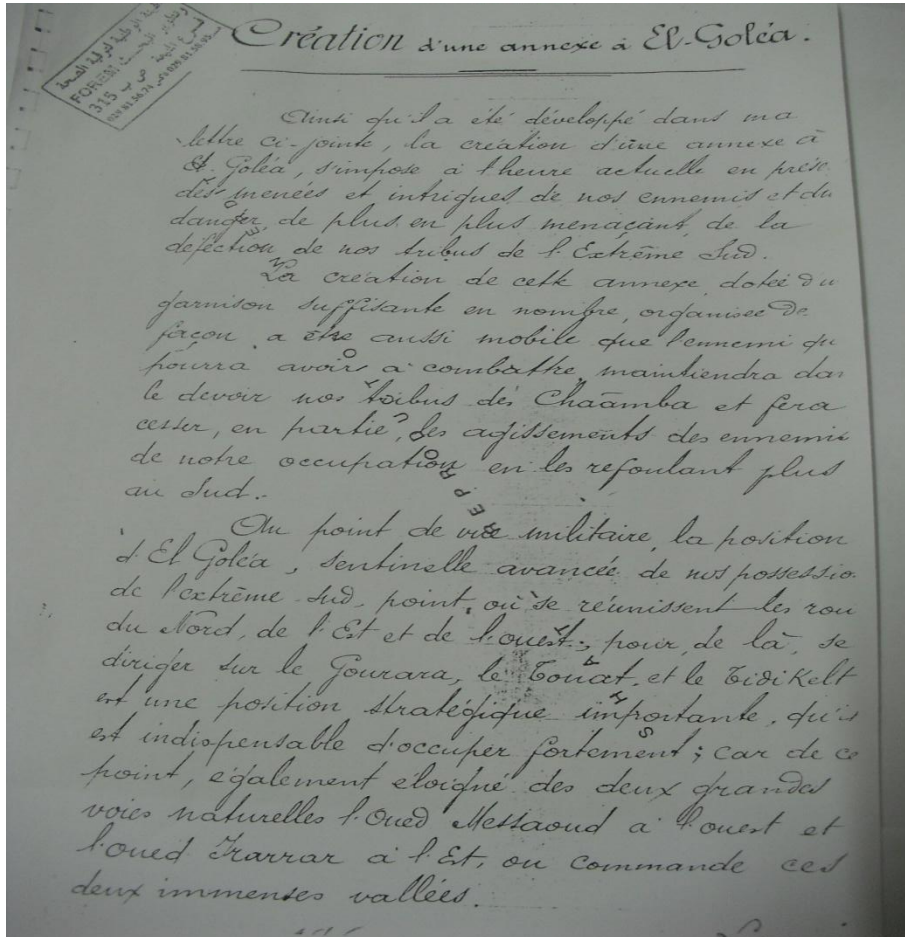 FOREM
315
Création d'une annexe à El-Goléa.
Ainsi qu'il a été développé dans ma
lettre ci-jointe, la création d'une annexe à
El-Goléa, s'impose à l'heure actuelle en prése
des menées et intrigues de nos ennemis et du
danger, de plus en plus menaçant, de la
défection de nos tribus de l'Extrême Sud.
La création de cette annexe, dotée du
garnison suffisante en nombre, organisée de
façon a être aussi mobile que l'ennemi qu
pourra avoir à combattre, maintiendra dan
le devoir nos tribus des Châamba et fera
cesser, en partie, les agissements des ennemis
de notre occupation en les refoulant plus
au Sud.
Au point de vue militaire, la position
d'El Goléa, sentinelle avancée de nos possessio
de l'extrême Sud, point, où se réunissent les rou
du Nord, de l'Est et de l'ouest, pour, de là, se
diriger sur le Gourara, le Touat, et le Tidikelt
est une position stratégique importante, qu'il
est indispensable d'occuper fortement ; car de ce
point, également éloigné des deux grandes
voies naturelles l'Oued Messaoud à l'ouest et
l'oued Irarrar à l'Est, on commande ces
deux immenses vallées.